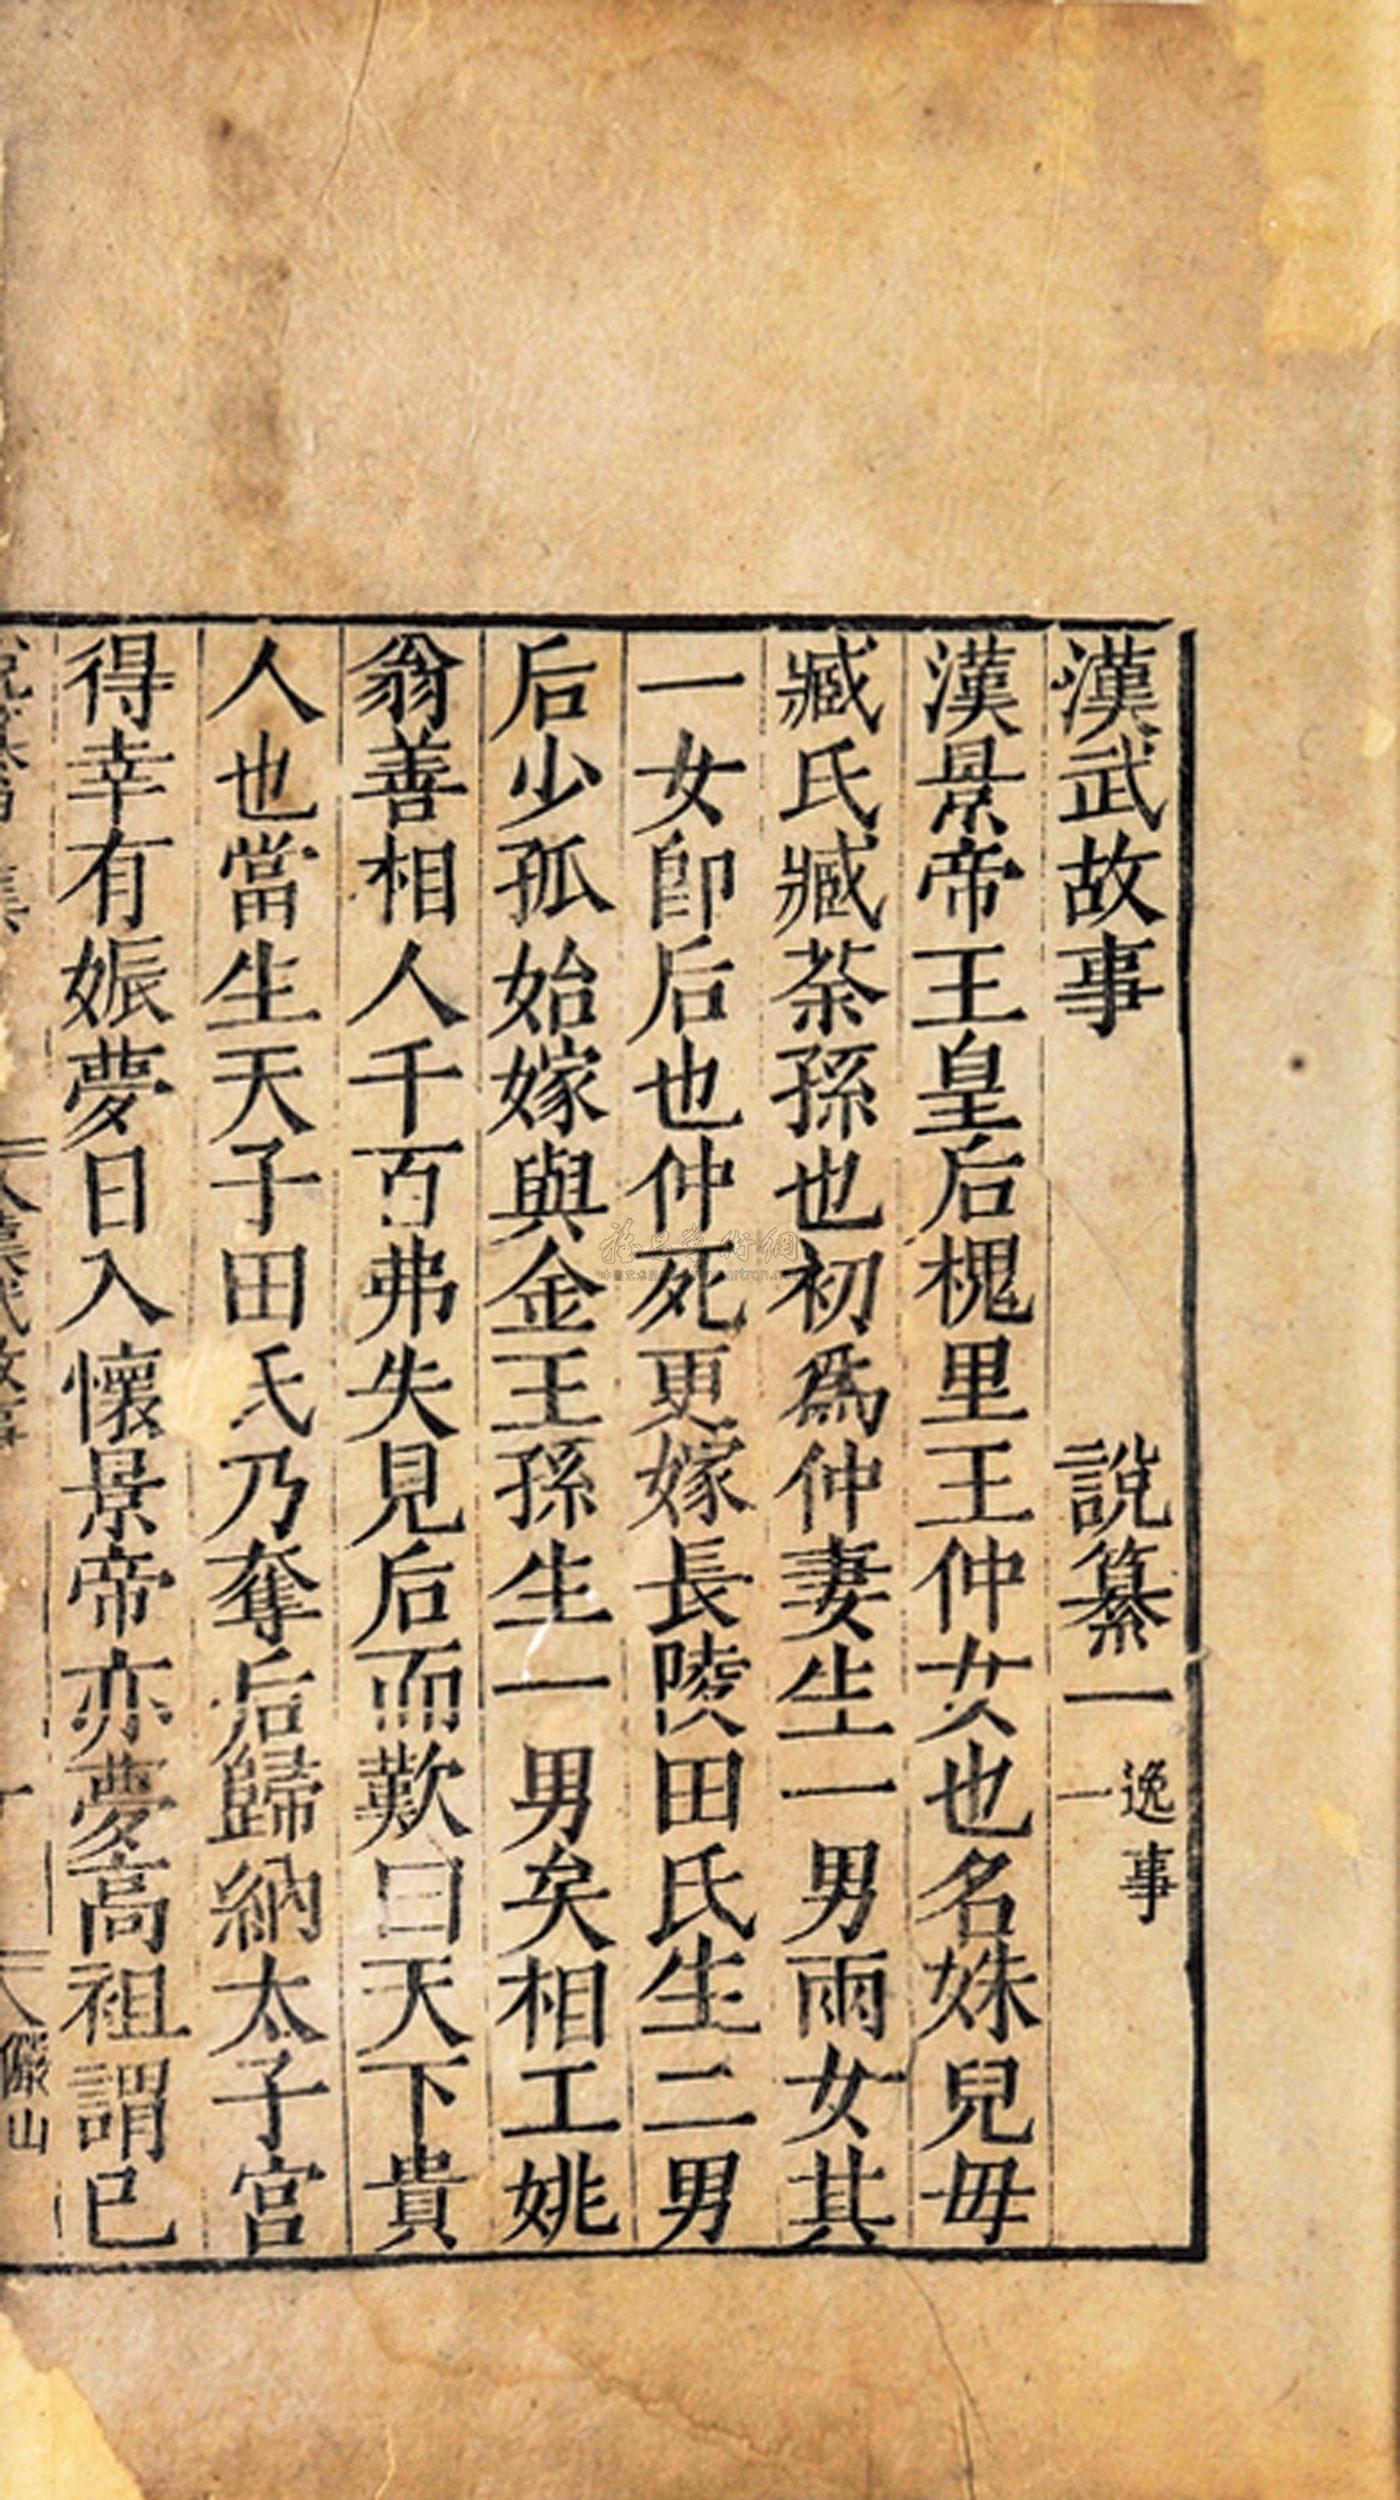 漢武故事 說纂一 逸事一
漢景帝王皇后槐里王仲女也名姝兒毋
臧氏臧荼孫也初爲仲妻生一男兩女其
一女卽后也仲死更嫁長陵田氏生二男
后少孤始嫁與金王孫生一男矣相工姚
翁善相人千百弗失見后而歎曰天下貴
人也當生天子田氏乃奪后歸納太子宮
得幸有娠夢日入懷景帝亦夢高祖謂已